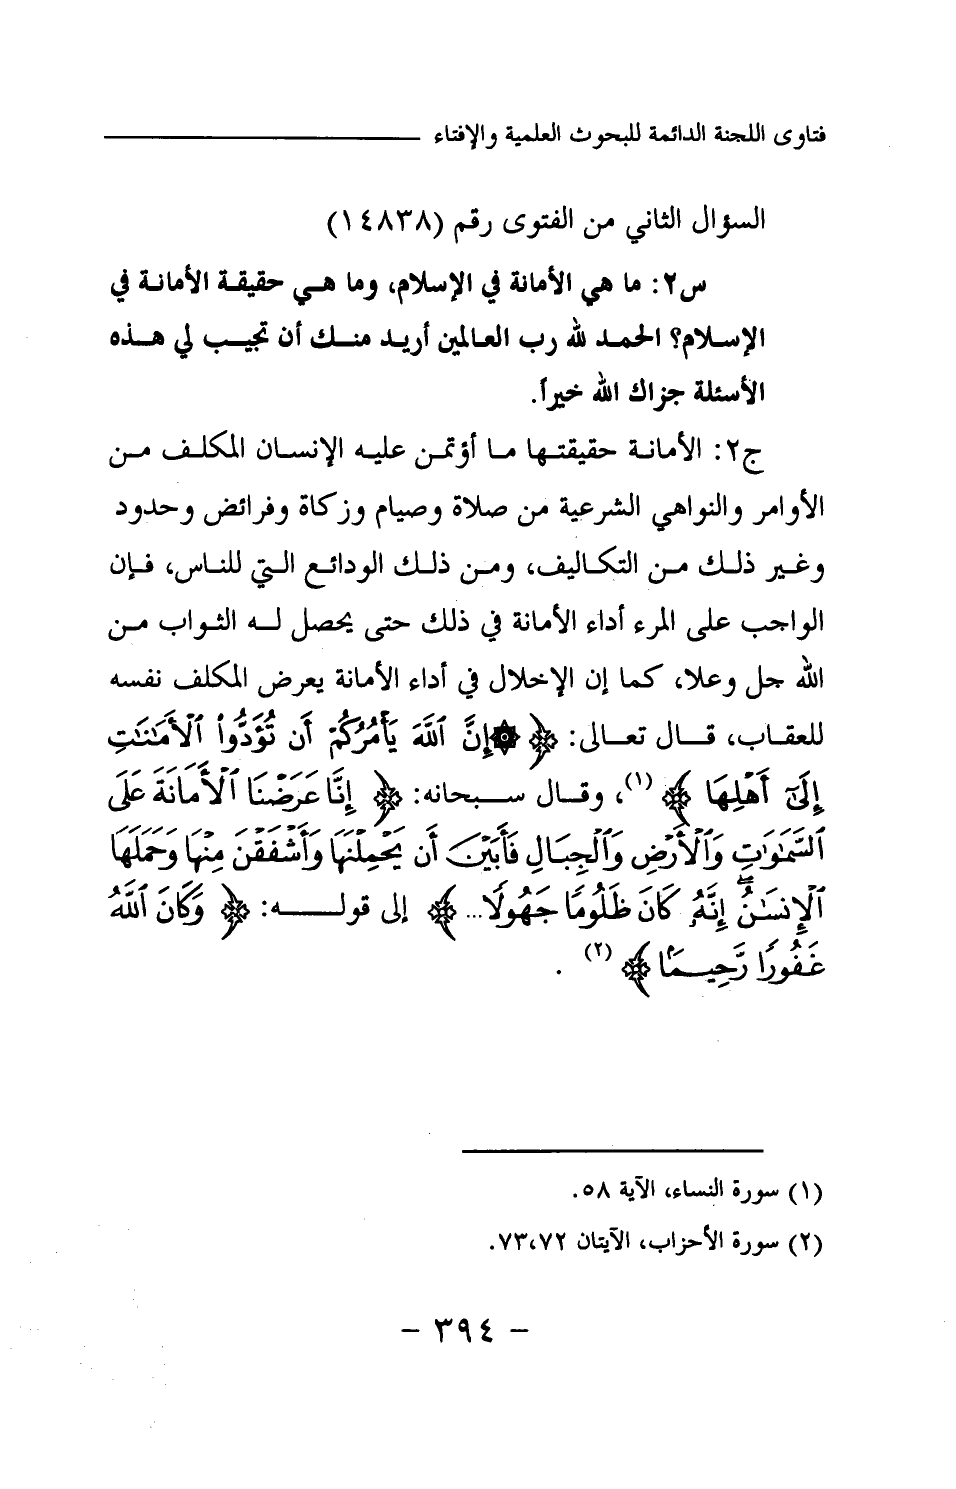 فتاوى اللجنة الدائمة للبحوث العلمية والإفتاء
السؤال الثاني من الفتوى رقم (١٤٨٣٨)
س٢: ما هي الأمانة في الإسلام، وما هي حقيقة الأمانة في
الإسلام؟ الحمد لله رب العالمين أريد منك أن تجيب لي هذه
الأسئلة جزاك الله خيراً.
ج٢: الأمانة حقيقتها ما أؤتمن عليه الإنسان المكلف من
الأوامر والنواهي الشرعية من صلاة وصيام وزكاة وفرائض وحدود
وغير ذلك من التكاليف، ومن ذلك الودائع التي للناس، فإن
الواجب على المرء أداء الأمانة في ذلك حتى يحصل له الثواب من
الله جل وعلا، كما إن الإخلال في أداء الأمانة يعرض المكلف نفسه
للعقاب، قال تعالى: ﴿ ۞إِنَّ ٱللَّهَ يَأْمُرُكُمْ أَن تُؤَدُّوا۟ ٱلْأَمَـٰنَـٰتِ
إِلَىٰٓ أَهْلِهَا ﴾ (١)، وقال سبحانه: ﴿ إِنَّا عَرَضْنَا ٱلْأَمَانَةَ عَلَى
ٱلسَّمَـٰوَٰتِ وَٱلْأَرْضِ وَٱلْجِبَالِ فَأَبَيْنَ أَن يَحْمِلْنَهَا وَأَشْفَقْنَ مِنْهَا وَحَمَلَهَا
ٱلْإِنسَـٰنُ ۖ إِنَّهُۥ كَانَ ظَلُومًا جَهُولًا... ﴾ إلى قوله: ﴿ وَكَانَ ٱللَّهُ
غَفُورًا رَّحِيمًا ﴾ (٢) .
(١) سورة النساء، الآية ٥٨.
(٢) سورة الأحزاب، الآيتان ٧٣،٧٢.
- ٣٩٤ -